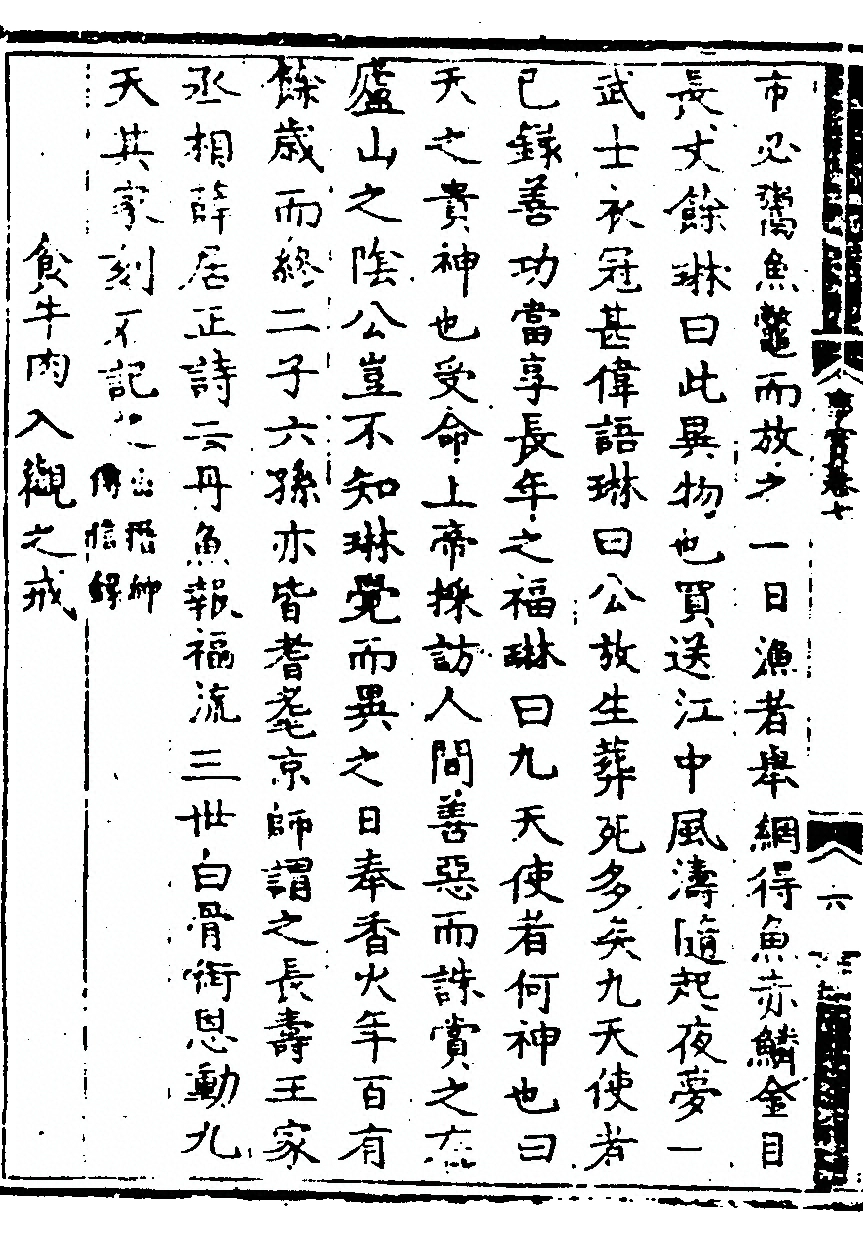 事實卷七
六
市必鬻魚鼈而放之一日漁者舉網得魚赤鱗金目
長丈餘琳曰此異物也買送江中風濤隨起夜夢一
武士衣冠甚偉語琳曰公放生葬死多矣九天使者
已錄善功當享長年之福琳曰九天使者何神也曰
天之貴神也受命上帝採訪人間善惡而誅賞之在
廬山之陰公豈不知琳覺而異之日奉香火年百有
餘歲而終二子六孫亦皆耆耄京師謂之長壽王家
丞相薛居正詩云丹魚報福流三世白骨銜恩動九
天其家刻石記之
出搢紳
傳信錄
食牛肉入觀之戒